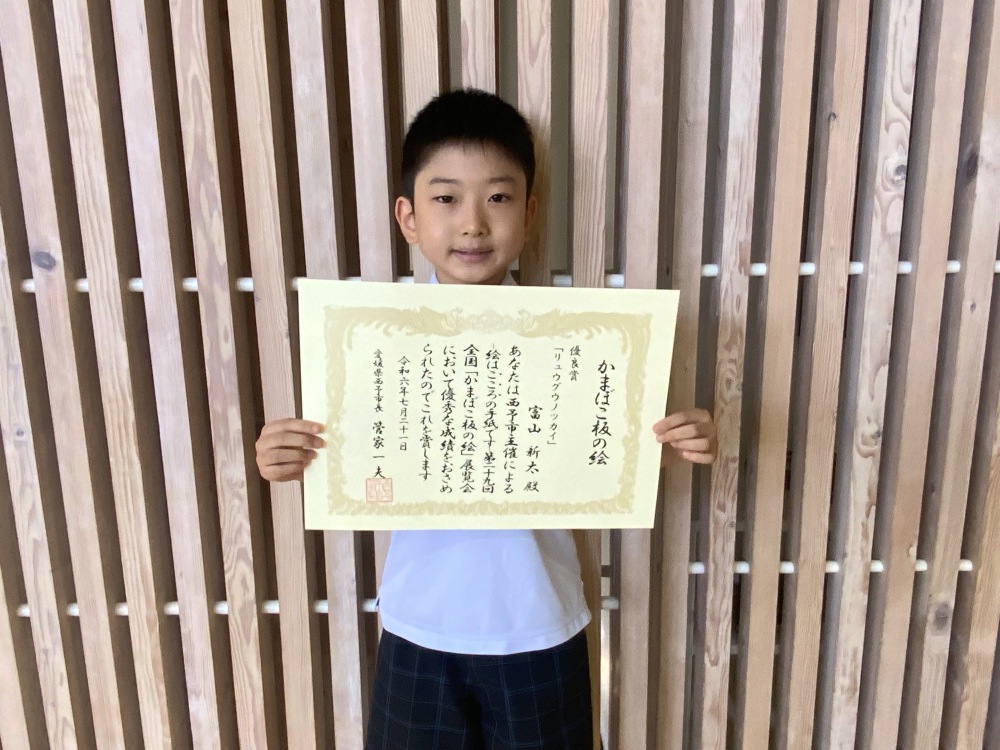 かまぼこ板の絵
優良賞
「リュウグウノツカイ」
富山 新太 殿
あなたは西予市主催による
-絵はこころの手紙です-第二十九回
全国「かまぼこ板の絵」展覧会
において優秀な成績をおさめ
られたのでこれを賞します
令和六年七月二十一日
愛媛県西予市長 管家一夫